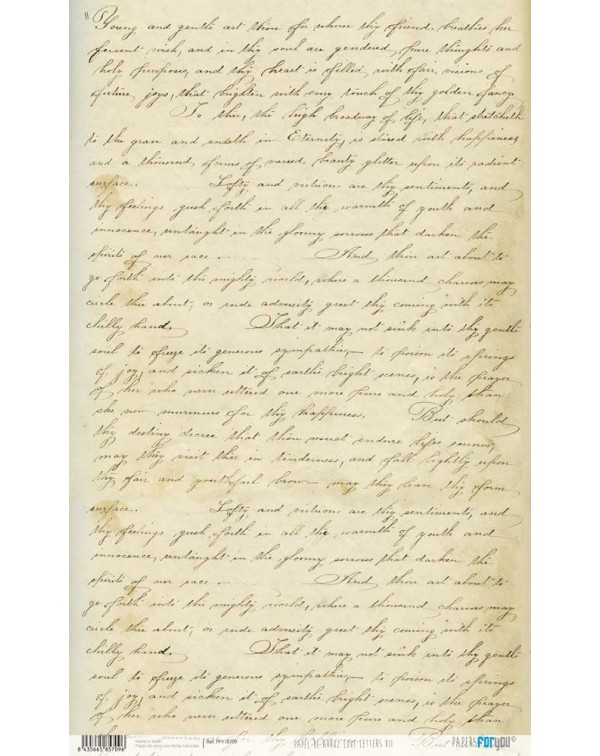 "Young and gentle art thou for whom thy friend breathes her
fervent wish, and in thy soul are gendered pure thoughts and
holy purposes, and thy heart is filled with fair visions of
future joys, that brighten with every touch of thy golden fancy
To thee, the high broadway of life, that stretcheth
to the grave and endeth in Eternity, is stored with happiness
and a thousand forms of varied beauty glitter upon its radiant
surface. Lofty and are thy sentiments, and
thy feelings gush forth in all the warmth of youth and
innocence, untaught in the gloomy sorrows that darken the
spirits of our race. And, thou art about to
go forth into the mighty world, where a thousand charms may
circle thee about, or rude adversity greet thy coming with its
chilly hand. That it may not sink into thy gentle
soul to freeze its generous sympathies, to poison its springs
of joy, and sicken it of earths bright scenes, is the prayer
of her who never uttered one more pure and holy than
she now murmurs for thy happiness. But should
thy destiny decree that thou must endure lifes sorrows,
may they visit thee in tenderness, and fall lightly upon
thy fair and youthful brow may they bear thy form
surface. Lofty and are thy sentiments, and
thy feelings gush forth in all the warmth of youth and
innocence, untaught in the gloomy sorrows that darken the
spirits of our race. And, thou art about to
go forth into the mighty world, where a thousand charms may
circle thee about, or rude adversity greet thy coming with its
chilly hand. That it may not sink into thy gentle
soul to freeze its generous sympathies, to poison its springs
of joy, and sicken it of earths bright scenes, is the prayer
of her who never uttered one more pure and holy than
But
8 435661 857096
Made in Spain
PAPEL DE ARROZ LETTERS
PAPERS FOR YOU